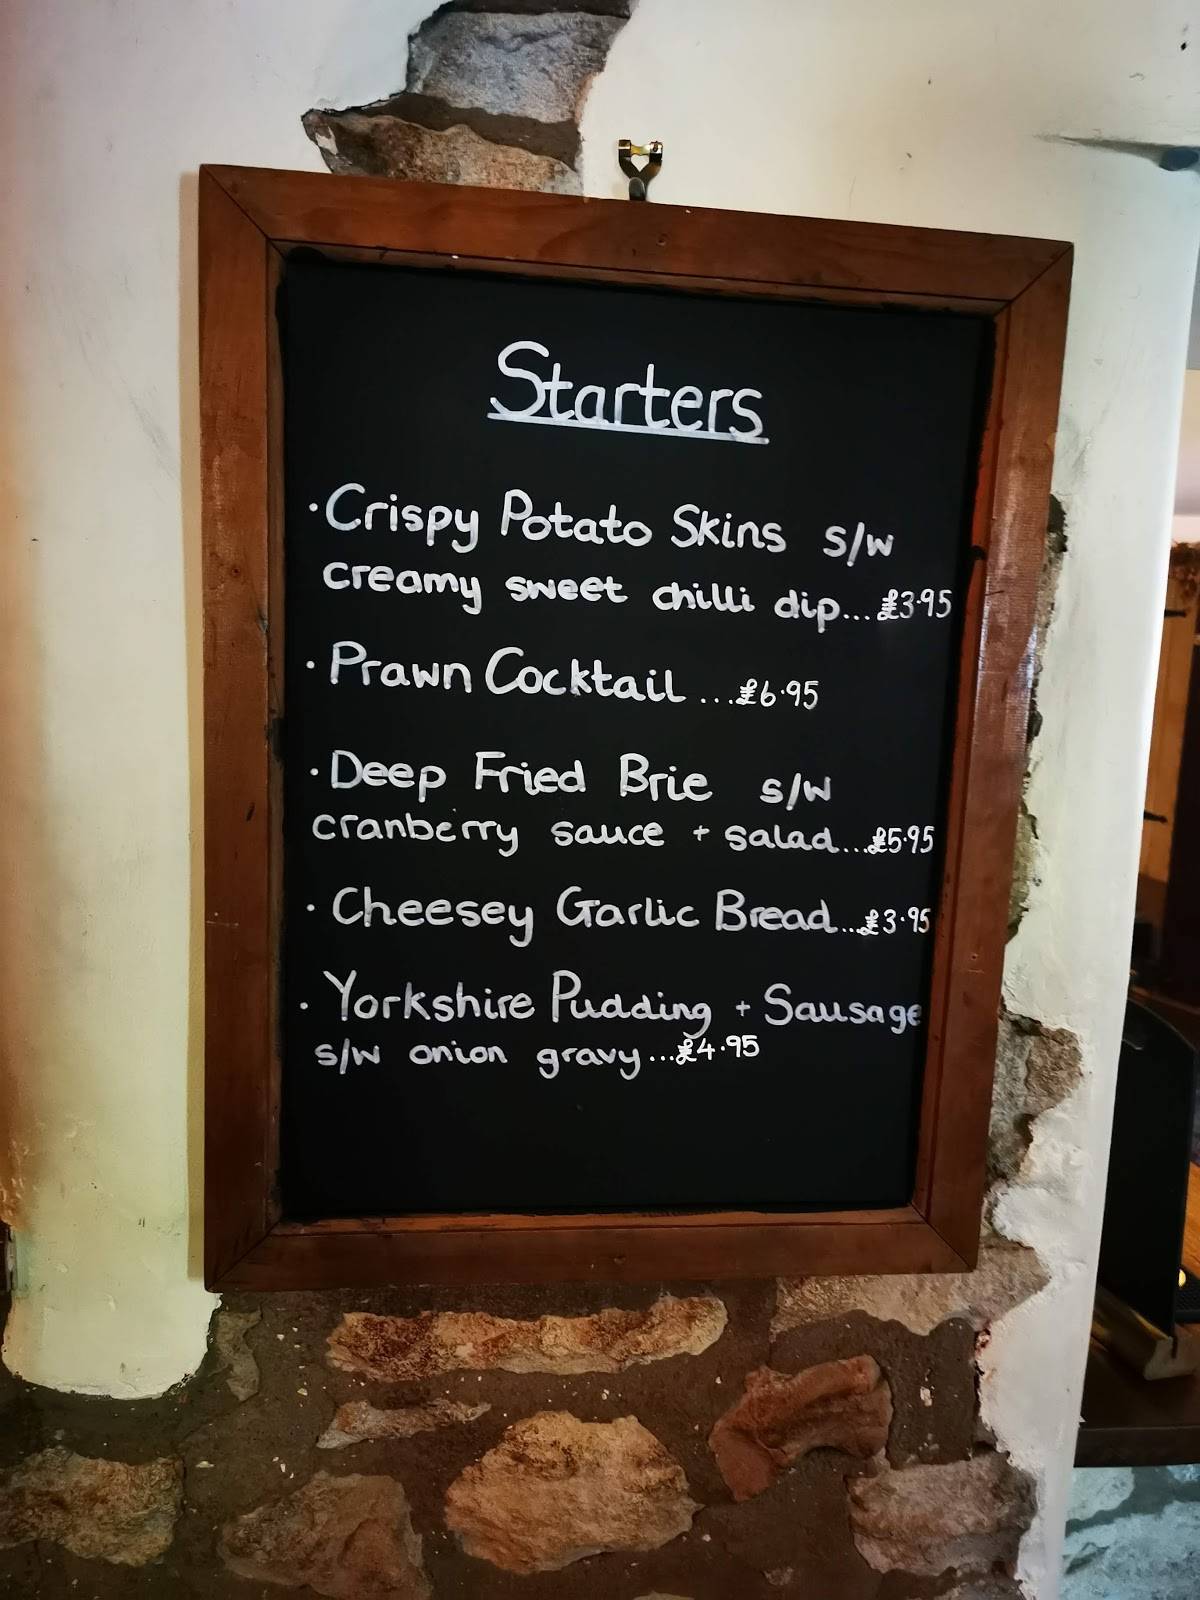 Starters
· Crispy Potato Skins s/w
creamy sweet chilli dip...£3.95
· Prawn Cocktail ...£6.95
· Deep Fried Brie s/w
cranberry sauce + salad...£5.95
· Cheesey Garlic Bread...£3.95
· Yorkshire Pudding + Sausage
s/w onion gravy...£4.95